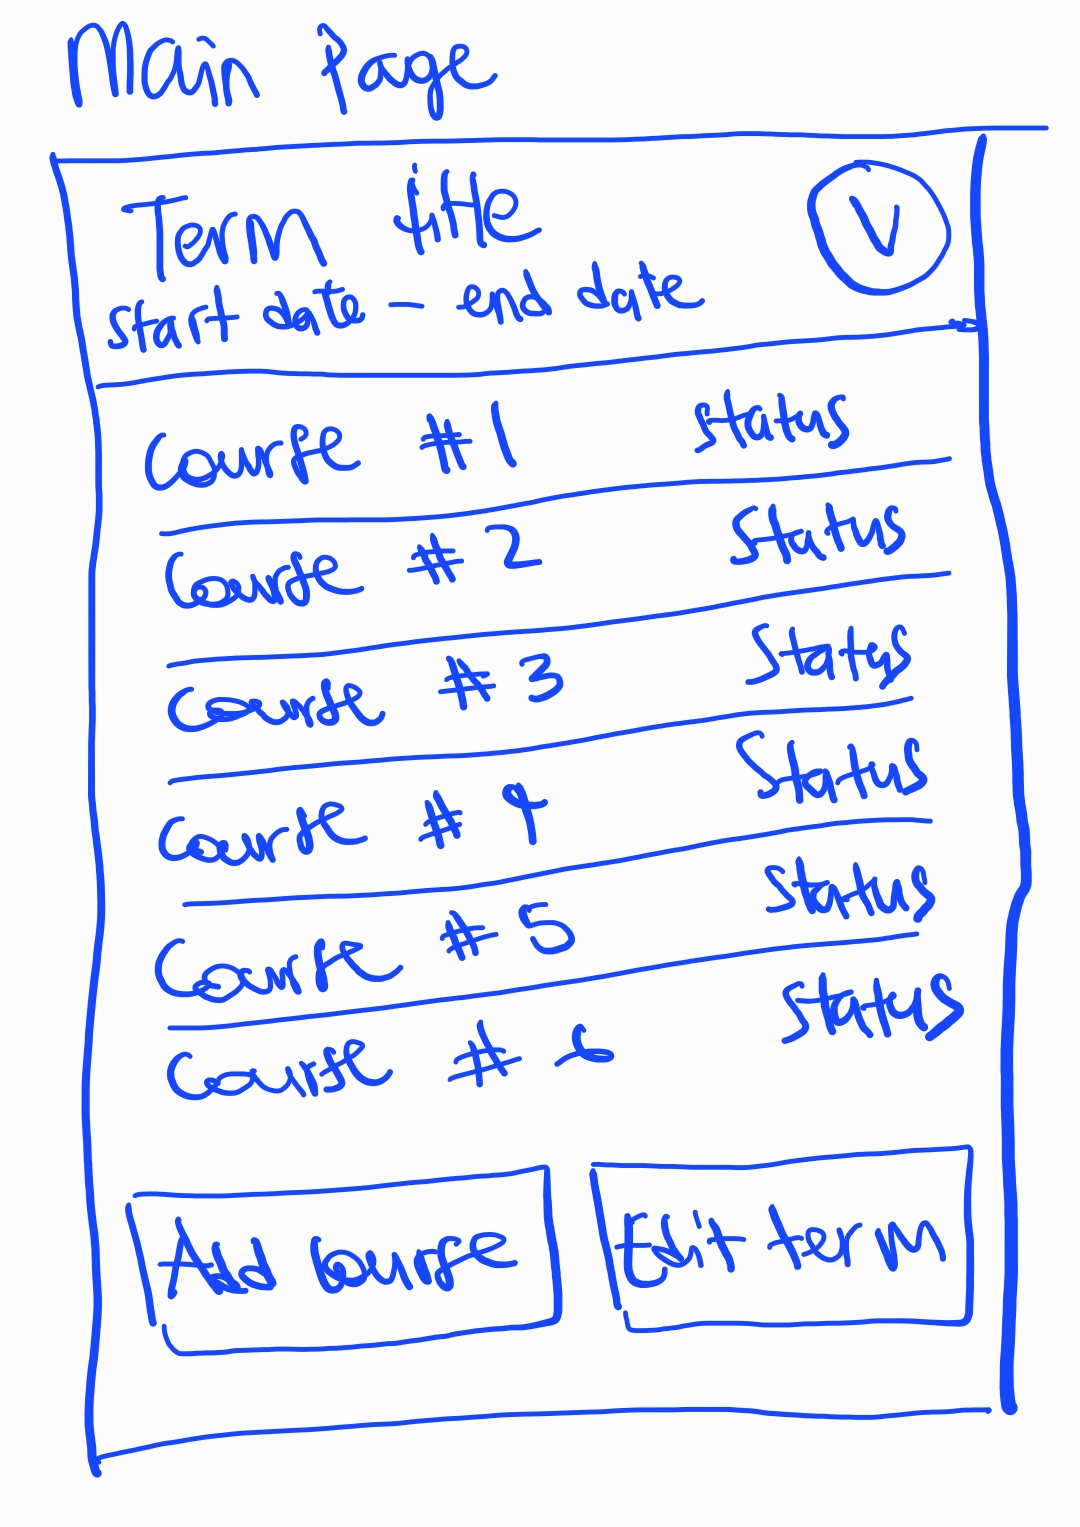 Main Page
Term title
V
start date - end date
Course #1 status
Course #2 Status
Course #3 Status
Course #4 Status
Course #5 status
Course #6 status
Add Course Edit term